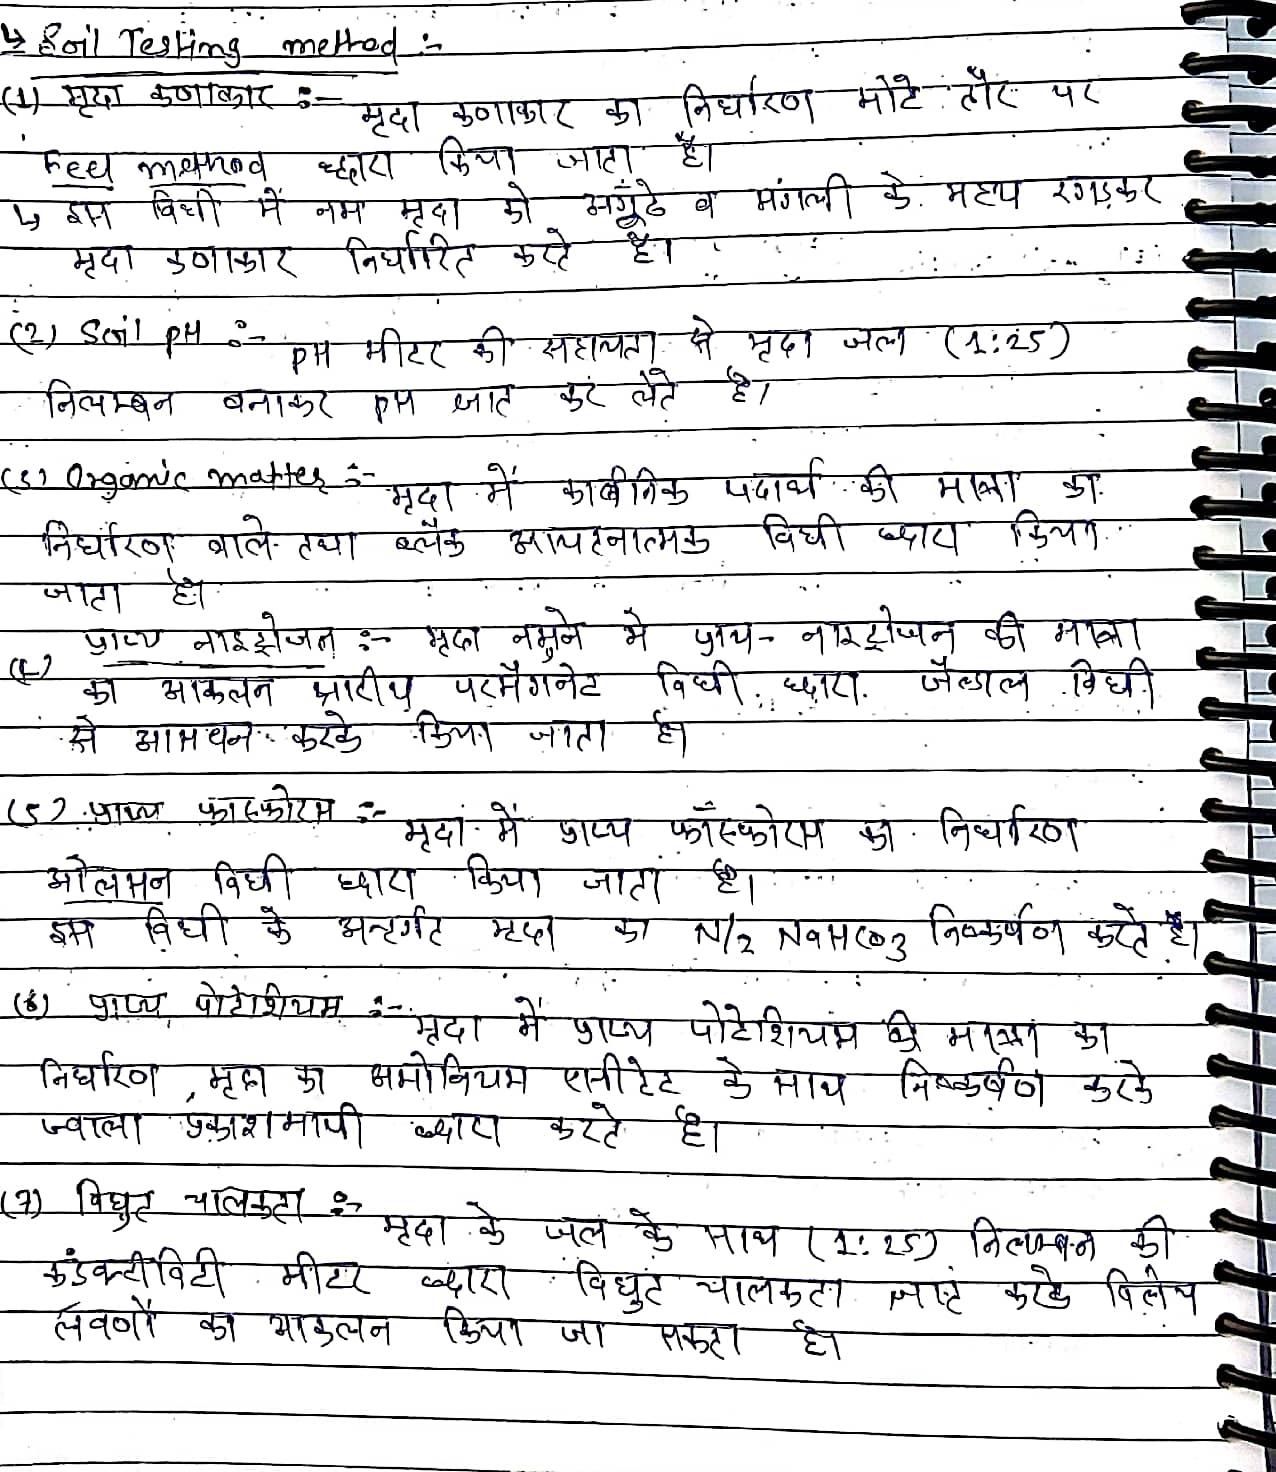 ↳ Soil Testing method :-
(1) मृदा कणाकार :- मृदा कणाकार का निर्धारण मोटे तौर पर
Feel method द्वारा किया जाता है।
↳ इस विधी में नम मृदा को अगूँठे व अंगली के मध्य रगड़कर
मृदा कणाकार निर्धारित करते है।
(2) Soil pH :- pH मीटर की सहायता से मृदा जल (1:25)
निलम्बन बनाकर pH ज्ञात कर लेते है।
(3) Organic matter :- मृदा में कार्बनिक पदार्थ की मात्रा का
निर्धारण वाले तथा ब्लैक आयतनात्मक विधी द्वारा किया
जाता है।
प्राप्य नाइट्रोजन :- मृदा नमुने मे प्राप्य - नाइट्रोजन की मात्रा
का आकलन क्षारीय परमैगनेट विधी द्वारा जैल्डाल विधी
से आसवन करके किया जाता है।
(5) प्राप्य फास्फोरस :- मृदा में प्राप्य फॉस्फोरस का निर्धारण
ओलसन विधी द्वारा किया जाता है।
इस विधी के अन्तर्गत मृदा का N/2 NaHCO3 निष्कर्षण करते है।
(6) प्राप्य पोटेशियम :- मृदा में प्राप्य पोटेशियम की मात्रा का
निर्धारण, मृदा का अमोनियम एसीटेट के साथ निष्कर्षण करके
ज्वाला प्रकाशमापी द्वारा करते है।
(7) विधुत चालकता :- मृदा के जल के साथ (1:25) निलम्बन की
कंडक्टीविटी मीटर द्वारा विधुत चालकता ज्ञात करके विलेय
लवणों का आकलन किया जा सकता है।